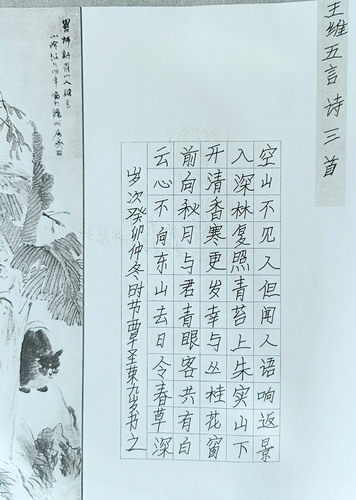 王维五言诗三首
空山不见人但闻人语响返景
入深林复照青苔上朱实山下
开清香寒更发幸与丛桂花窗
前向秋月与君青眼客共有白
云心不向东山去日令春草深
岁次癸卯仲冬时节覃圣书之